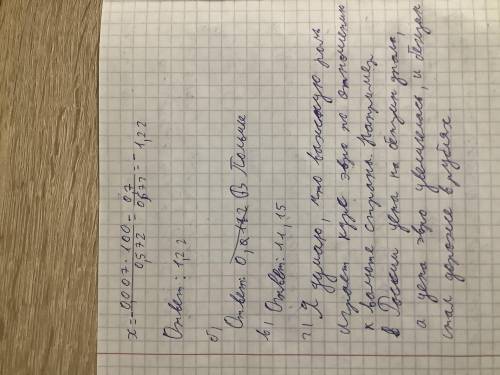 x = -0,007·100/0,572 = 0,7/0,577 = -1,22
Ответ: 1,22
б)
Ответ: В Польше
в) Ответ: 11,15
г) Я думаю, что важную роль
играет курс евро по отношению
к валюте страны. Например,
в России цена на бензин упала,
а цена евро увеличилась, и бензин
стал дороже в рублях.